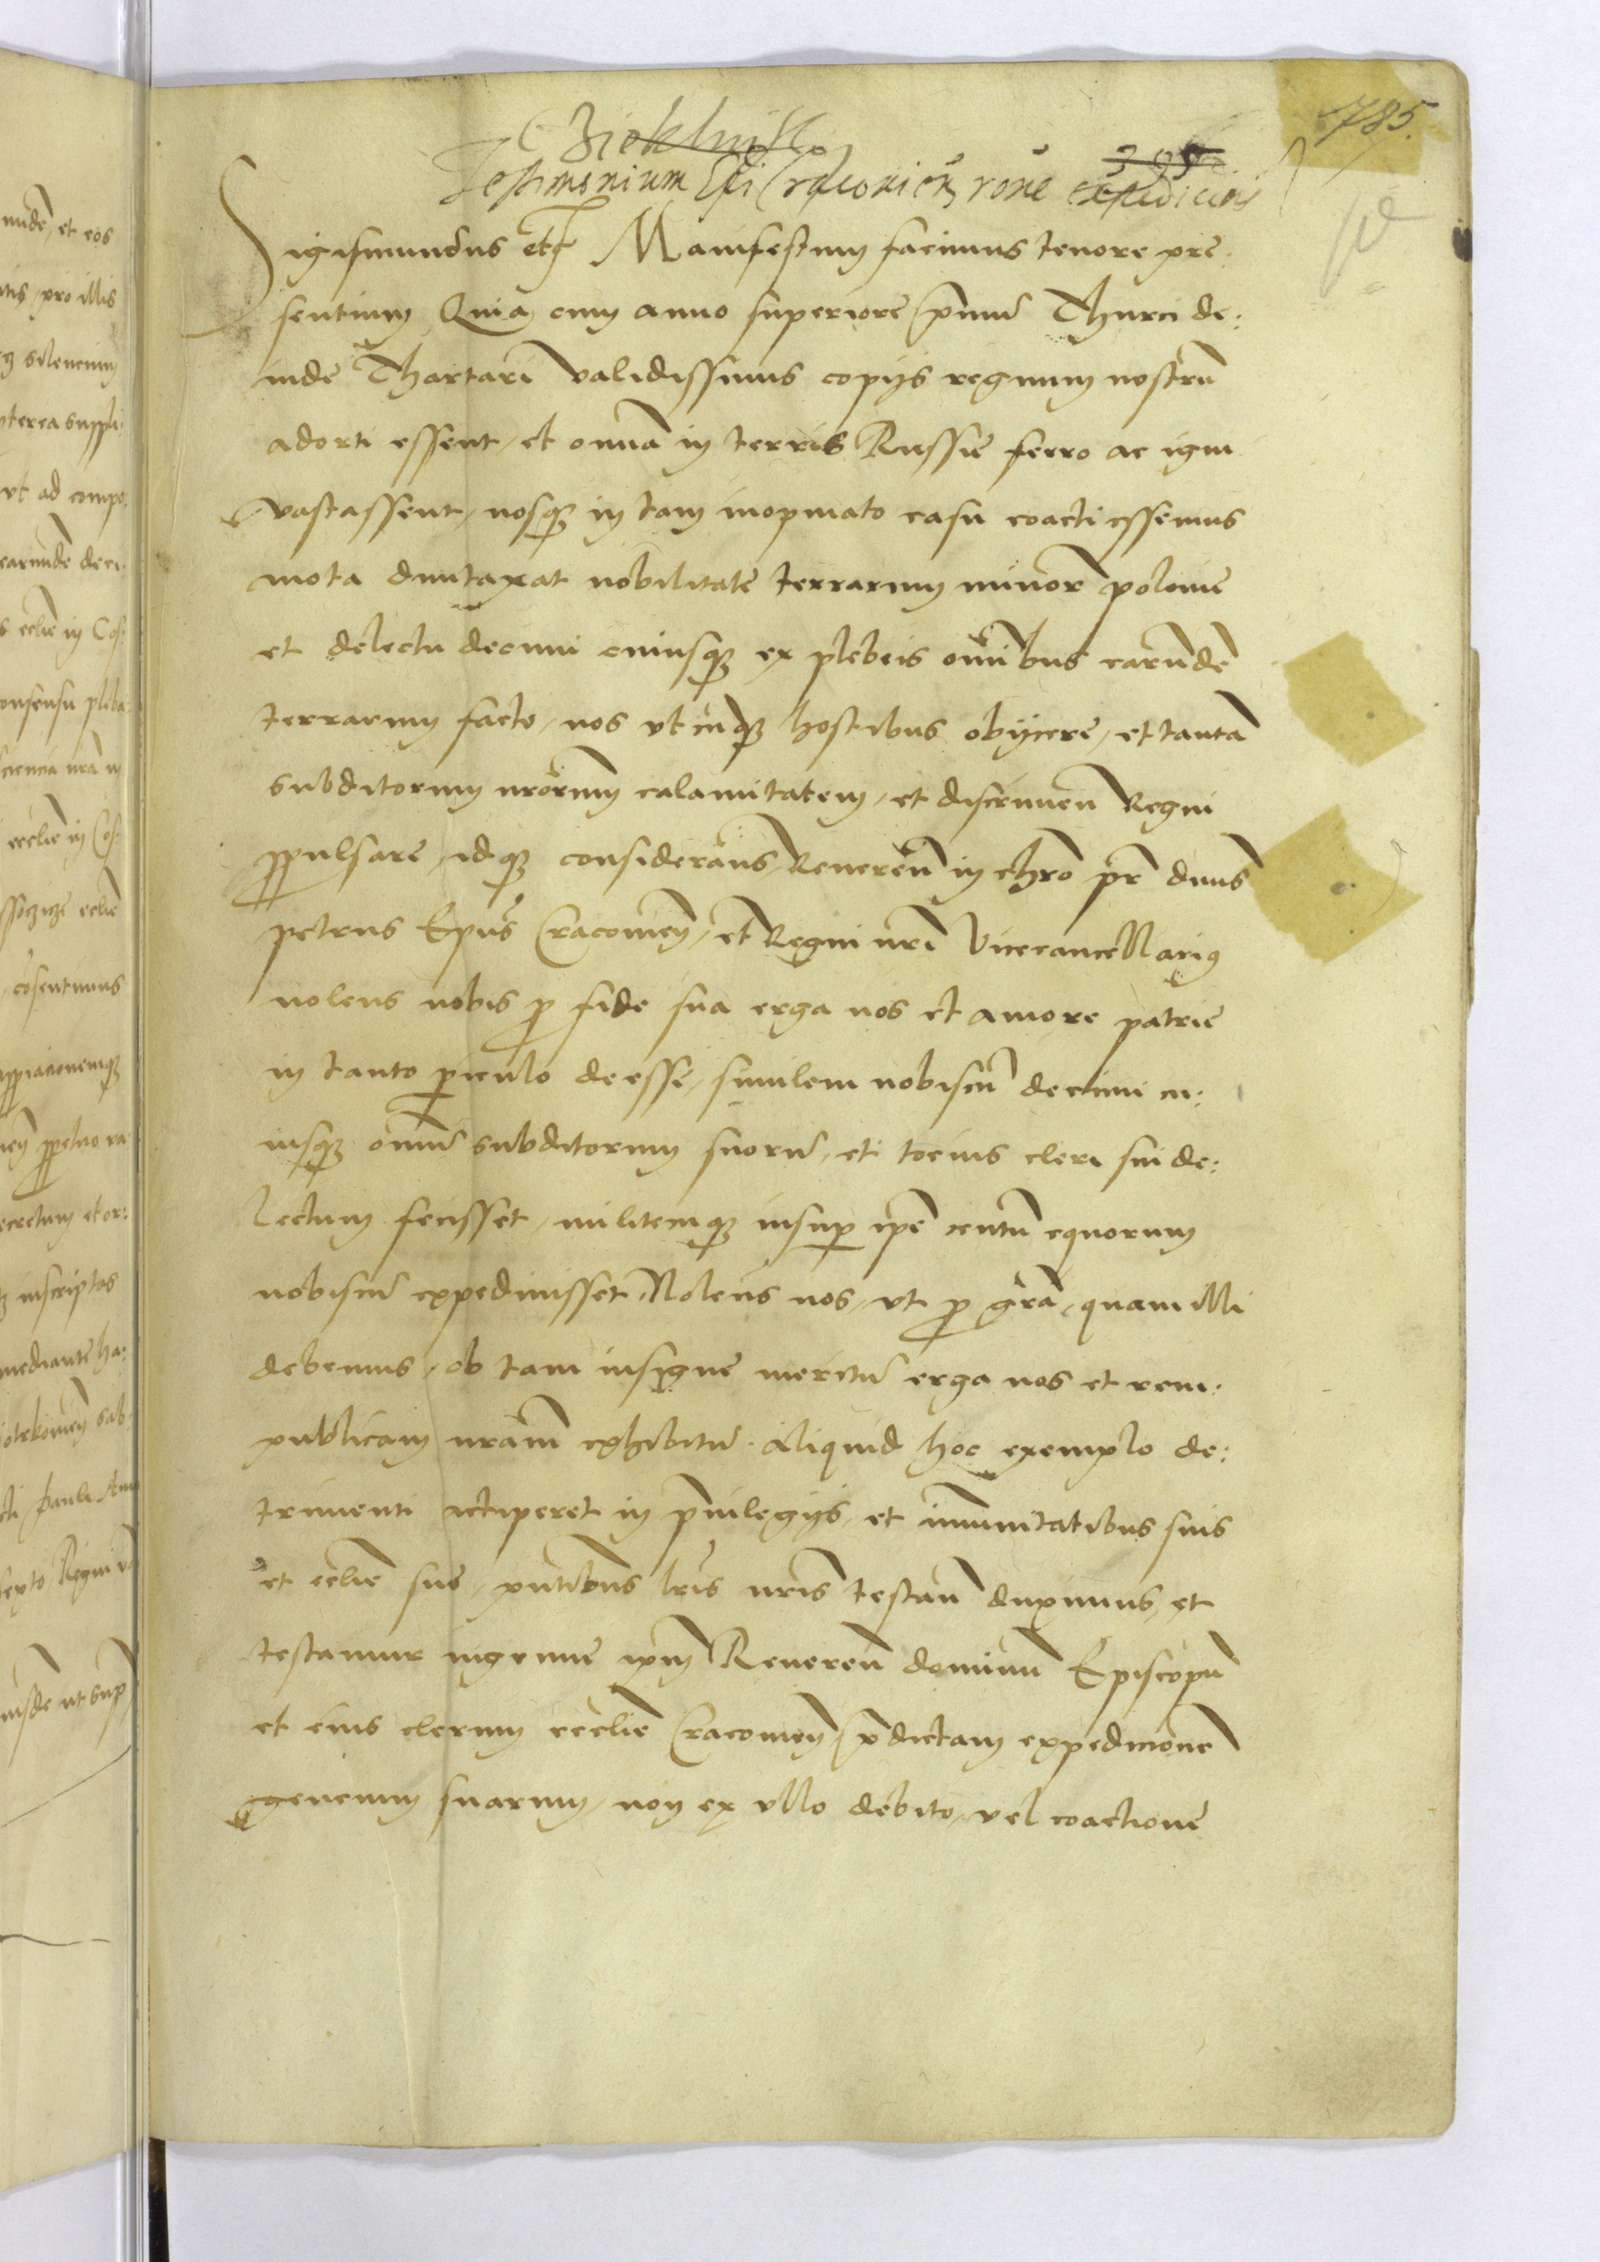 785.
395
Testimonium Epi Cracovien rone expedicionis
Sigismundus etc Manifestum facimus tenore pre:
sentium Quia cum anno superiore primu Thurci de:
inde Thartari validissimis copijs regnum nostru
adorti essent, et omnia in terris Russie ferro ac igni
vastassent, nosq in tam inopinato casu coacti essemus
mota duntaxat nobilitate terrarum minor polonie
et delectu decimi cuiusq ex plebeis omnibus earunde
terrarum facto, nos utcunq hostibus obijcere, et tanta
subditorum nrorum calamitatem, et discrimen Regni
propulsare, idq considerans Reveren in chro pr dnus
petrus Epus Cracovien, et Regni nri Vicecancellarius
nolens nobis pro fide sua erga nos et amore patrie
in tanto periculo deesse, similem nobiscu decimi cu:
iusq omniu subditorum suoru, et tocius cleri sui de:
lectum fecisset, militemq insup ipe centu equorum
nobiscu expedivisset, Nolens nos, ut pro gra, quam illi
debemus, ob tam insigne meritu erga nos et rem:
publicam nram exhibitu aliquid hoc exemplo de:
trimenti acciperet in privilegijs, et immunitatibus suis
et ecclie sue, pntibus lris nris testan duximus, et
testamur ingenue ipm Reveren dominu Episcopu
et eius clerum ecclie Cracovien predictam expedicione
gencium suarum, non ex ullo debito, vel coactione